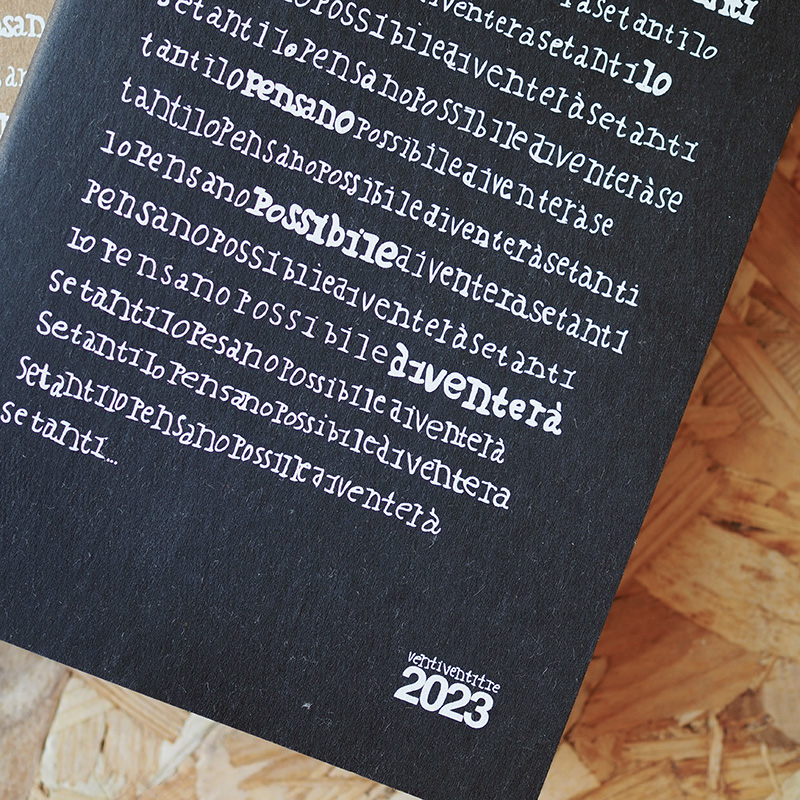 anti
ràsetantilo
diventerasetantilo
noPossibilediventeràsetanti
setantiloPensanoPossibilediventeràse
tantilopensanoPossibilediventeràse
tantiloPensanoPossibilediventeràsetanti
loPensanoPossibilediventerasetanti
PensanoPossibilediventeràsetanti
lo Pensano Possibile diventerà
setantiloPesanoPossibile diventerà
SetantiloPensanoPossibilediventera
setantiloPensanoPossiilediventerà
setanti...
ventiventitre
2023